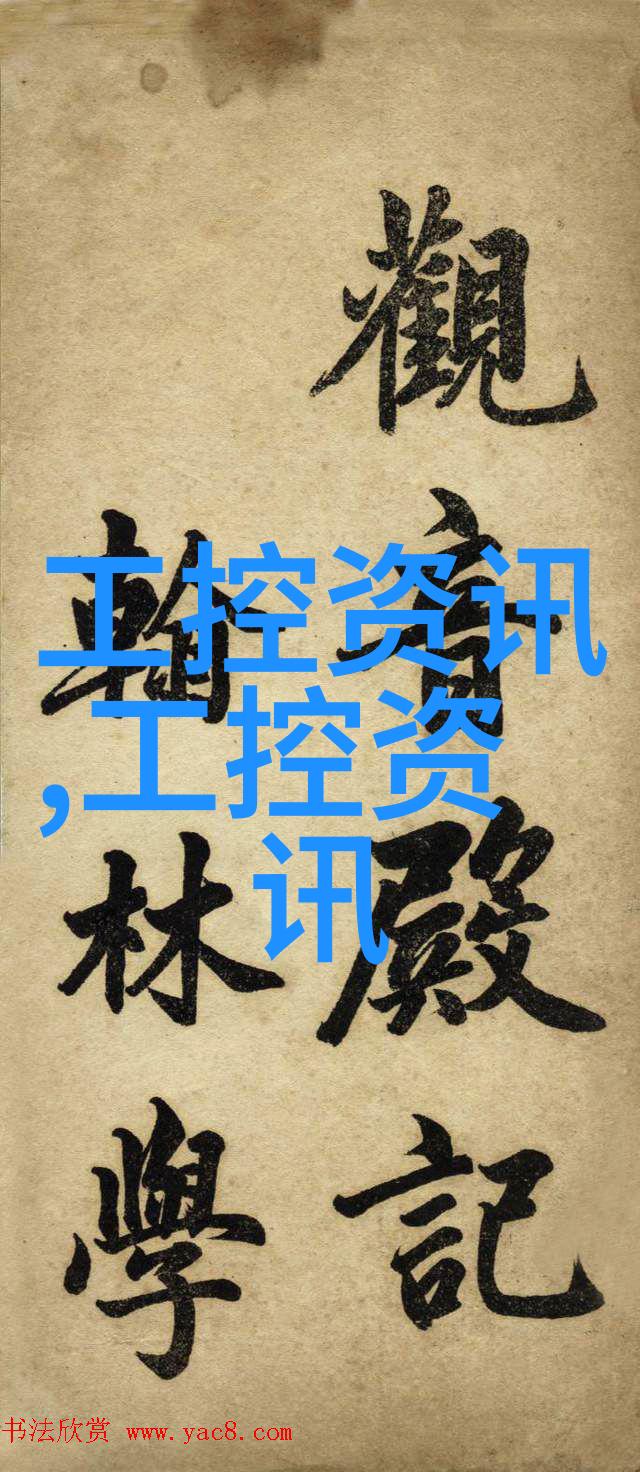 觀音殿記
翰林學
工控资讯
,工控资
讯
书法欣赏 www.yac8.com